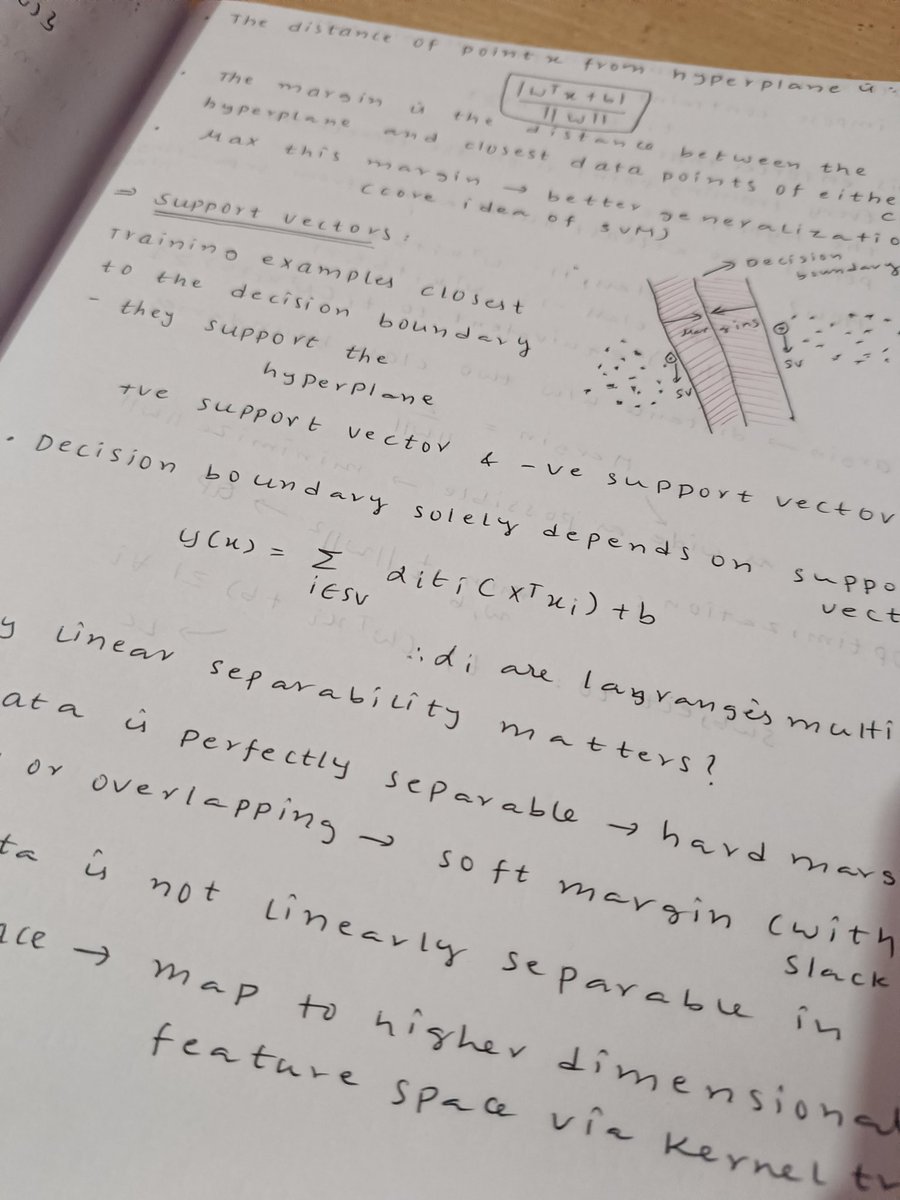 The distance of point x from hyperplane is :
|wᵀx + b|
||w||
. The margin is the distance between the
hyperplane and closest data points of eithe
c
. Max this margin → better generalizatio
(core idea of SVM)
⇒ Support vectors :
Training examples closest
to the decision boundary
- they support the
hyperplane
Decision
boundary
margins
SV
SV
+ve support vector & -ve support vector
. Decision boundary solely depends on suppo
vect
y(x) = Σ αiti (xᵀxi) + b
i∈SV
∴ αi are lagrange's multi
y linear separability matters?
ata is perfectly separable → hard marg
or overlapping → soft margin (with
slack
ta is not linearly separable in
ace → map to higher dimensional
feature space via kernel tr